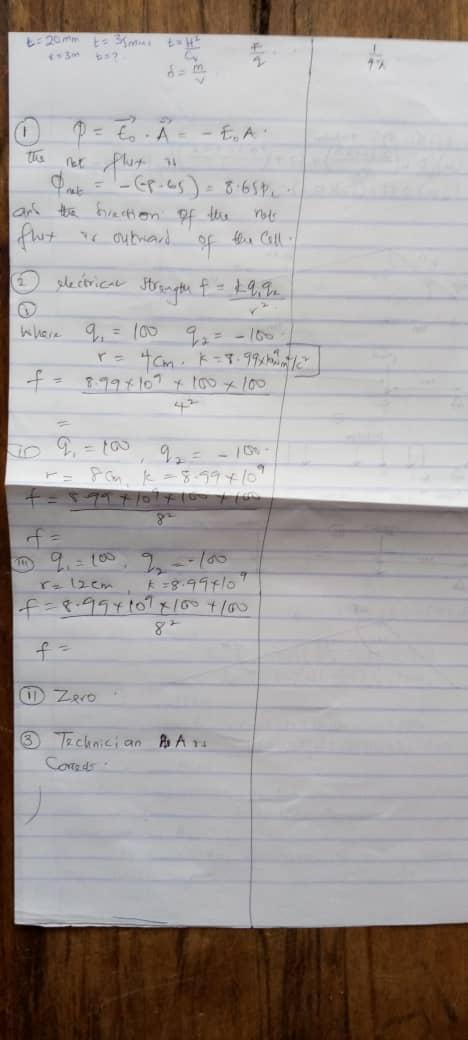 t = 20mm t = 35mins t = H²/Cv F/q 1/92
r = 3m t = ?
δ = m/v
① Φ = E₀ . A = - E₀A.
The net flux is
Φnet = -(-8.65) = 8.65
and the direction of the net
flux is outward of the Cell.
② electrical strength f = kq₁q₂/r²
①
where q₁ = 100 q₂ = -100
r = 4cm, K = 8.99x10⁹
f = 8.99 x 10⁹ x 100 x 100 / 4²
=
q₁ = 100, q₂ = -100.
r = 8cm, k = 8.99 x 10⁹
f = 8.99 x 10⁹ x 100 x 100 / 8²
f =
(III) q₁ = 100, q₂ = -100
r = 12cm, K = 8.99x10⁹
f = 8.99 x 10⁹ x 100 x 100 / 8²
f =
(11) Zero.
③ Technician A is